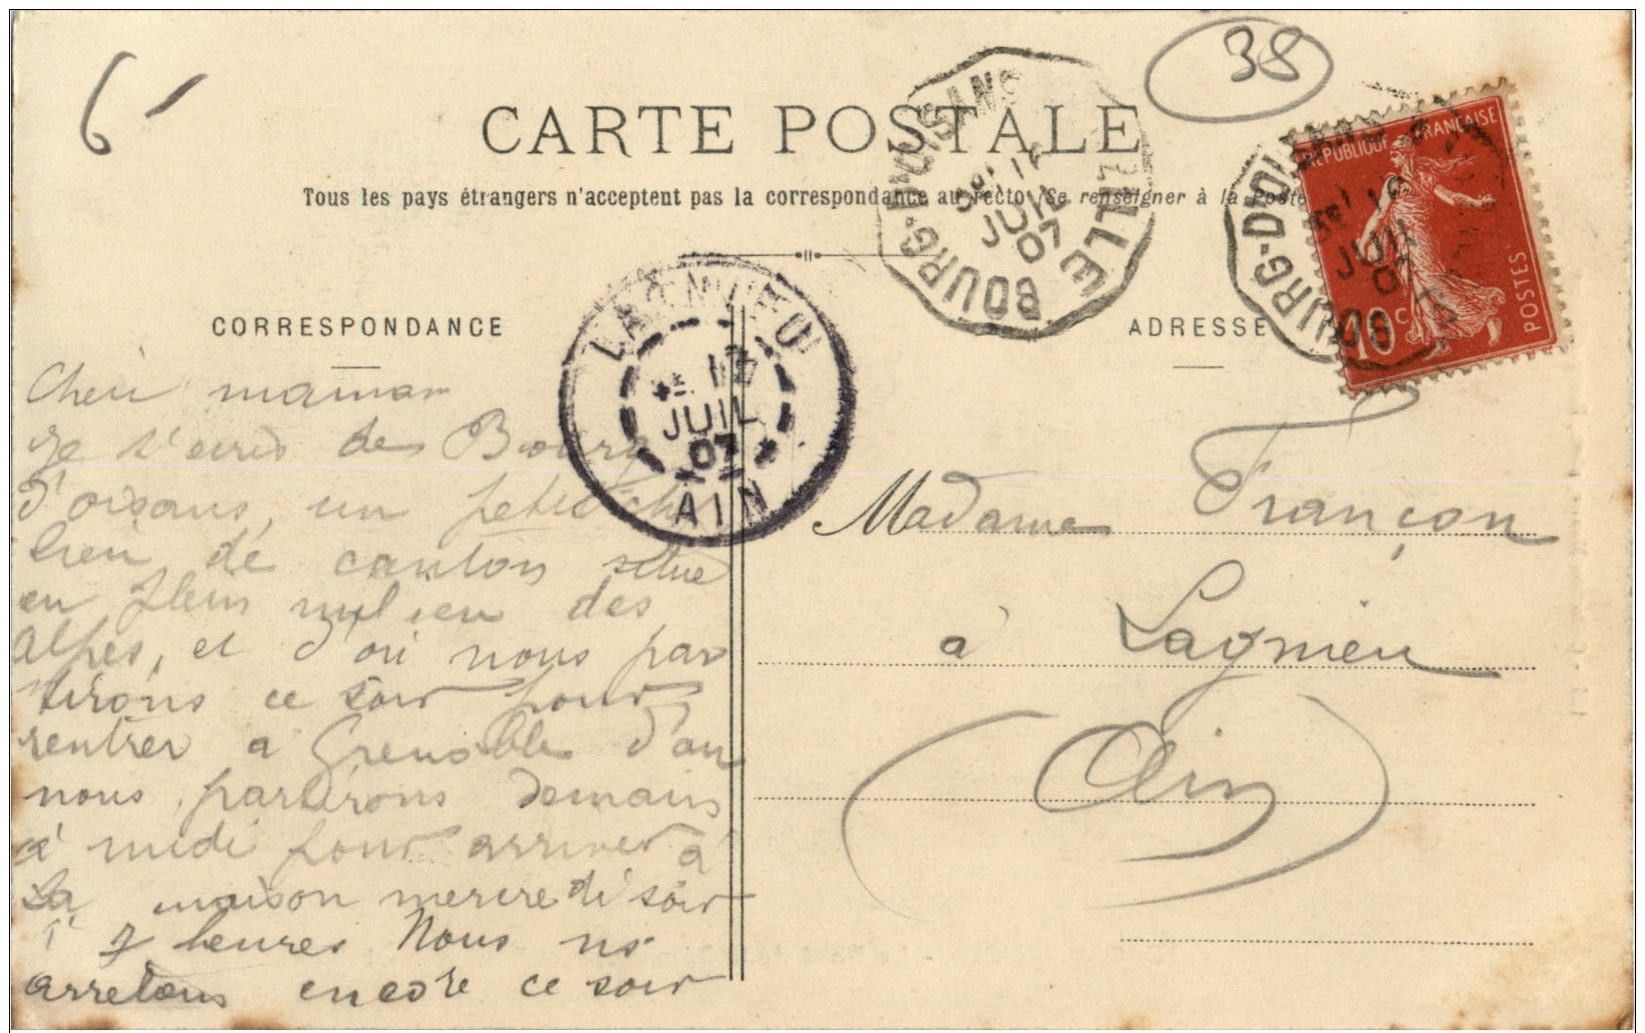 6-
38
CARTE POSTALE
Tous les pays étrangers n'acceptent pas la correspondance au recto (Se renseigner à la Poste
BOURG-D'OISANS
16
JUIL
07
RÉPUBLIQUE FRANÇAISE
10c
POSTES
BOURG-D'OISANS
JUIL
07
LAGNIEU
JUIL
07
AIN
CORRESPONDANCE
Cheri maman
Je t'ecris de Bourg
d'oisans, un petit ch
lieu de canton situé
en plein milieu des
alpes, et d'où nous par
tirons ce soir pour
rentrer a Grenoble d'ou
nous partirons demain
a midi pour arriver à
La maison mercredi soir
à 7 heures Nous ns
arretons encore ce soir
ADRESSE
Madame Françon
à Lagnieu
(Ain)